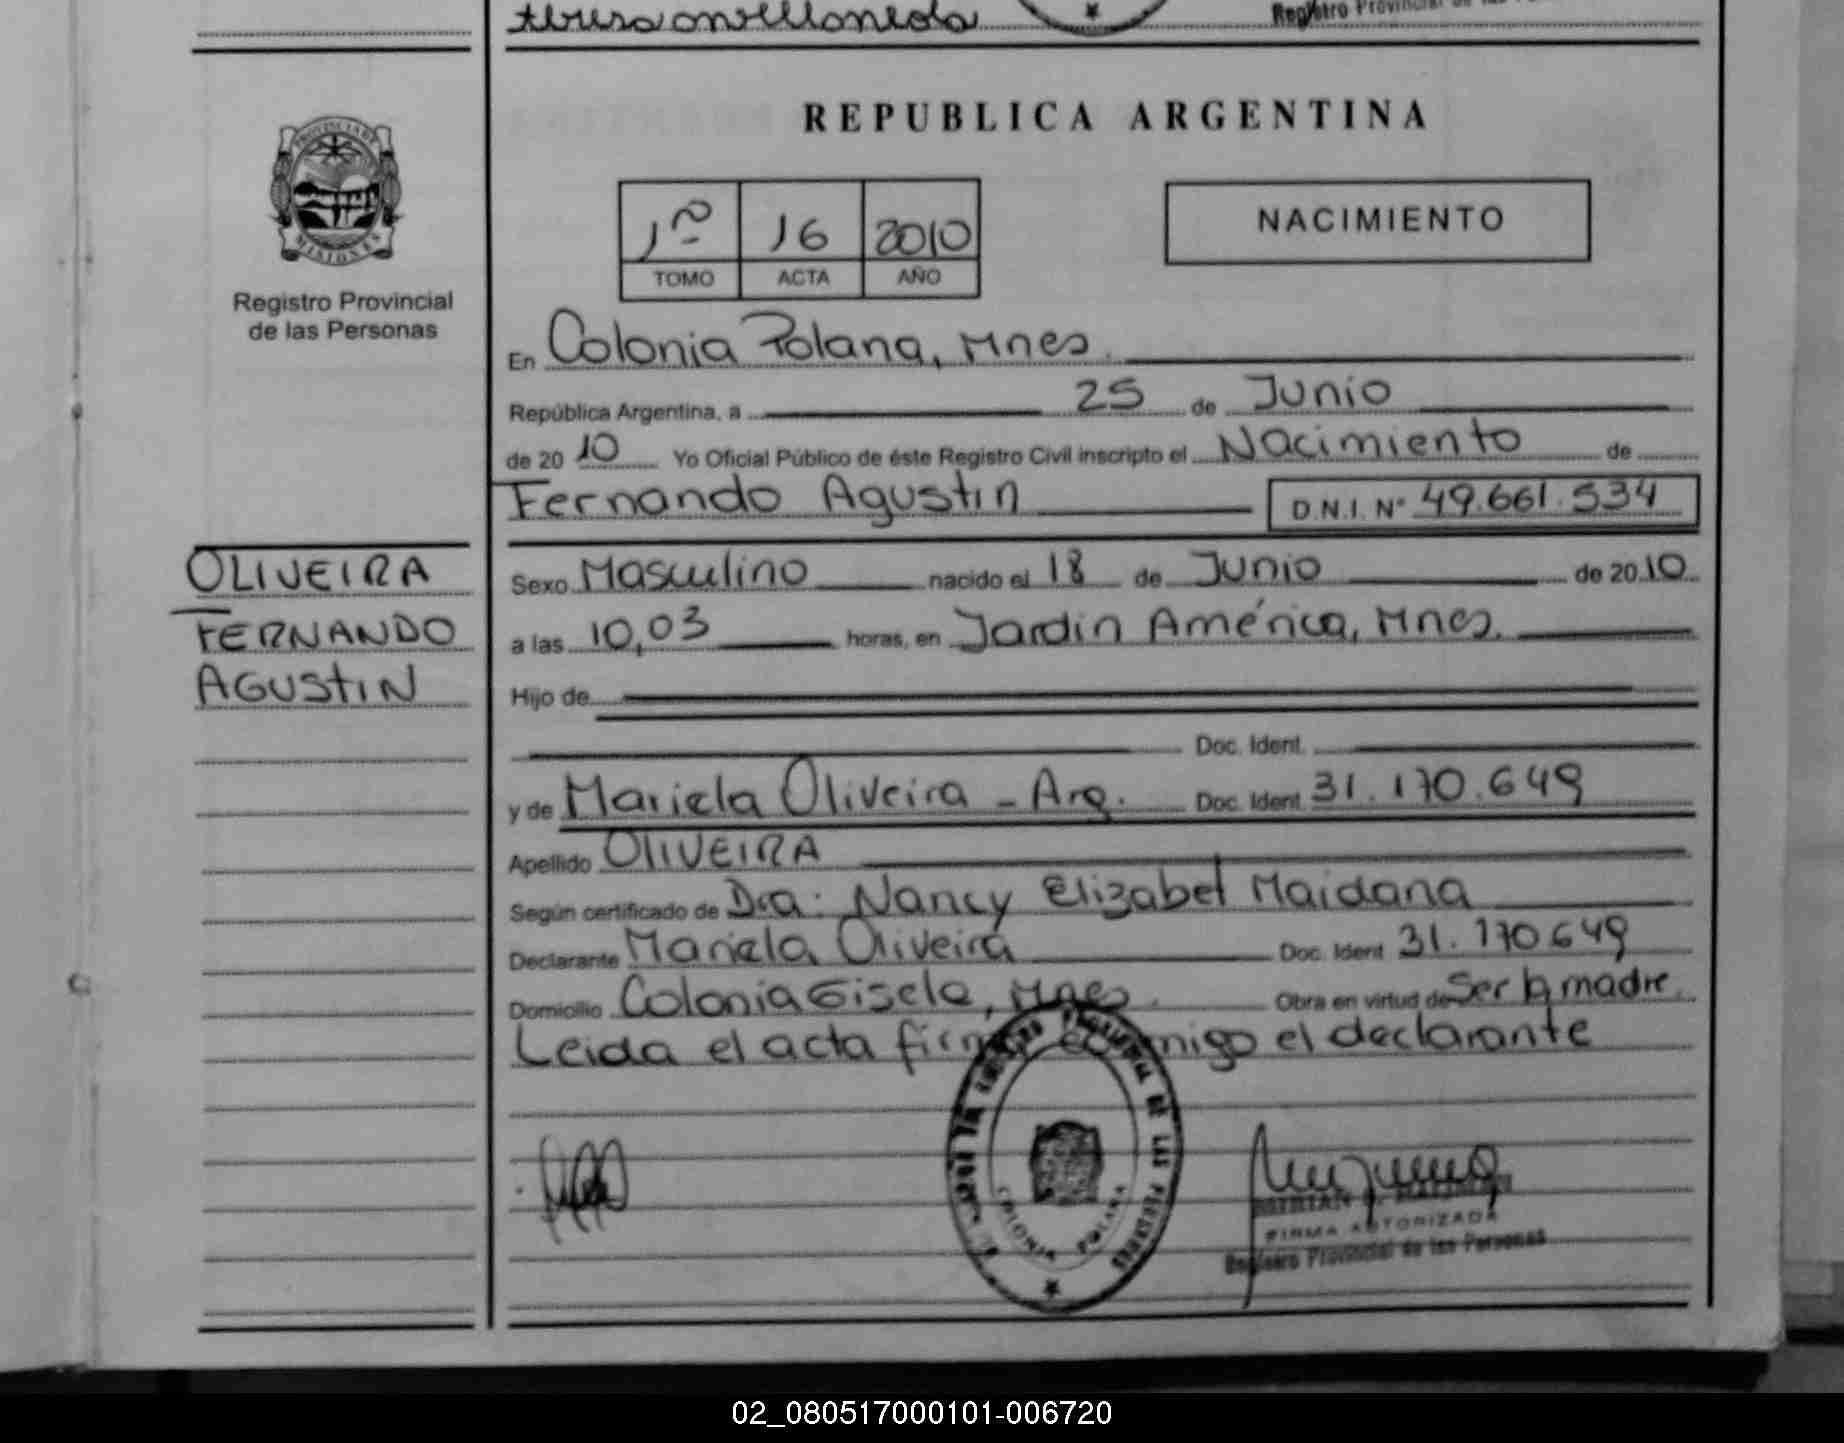 Registro Provincial de las
REPUBLICA ARGENTINA
PROVINCIA DE
MISIONES
Registro Provincial
de las Personas
1º 16 2010
TOMO ACTA AÑO
NACIMIENTO
En Colonia Polana, Mnes.
República Argentina, a 25 de Junio
de 2010 Yo Oficial Público de éste Registro Civil inscripto el Nacimiento de
Fernando Agustin D.N.I. Nº 49.661.534
OLIVEIRA
FERNANDO
AGUSTIN
Sexo Masculino nacido el 18 de Junio de 2010
a las 10,03 horas, en Jardín América, Mnes.
Hijo de
Doc. Ident.
y de Mariela Oliveira - Arg. Doc. Ident. 31.170.649
Apellido OLIVEIRA
Según certificado de Dra: Nancy Elizabet Maidana
Declarante Mariela Oliveira Doc. Ident 31.170649
Domicilio Colonia Gisela, Mnes. Obra en virtud de Ser la madre.
Leida el acta firma conmigo el declarante
PROVINCIAL DE LAS PERSONAS
COLONIA POLANA
FIRMA AUTORIZADA
Registro Provincial de las Personas
02_080517000101-006720